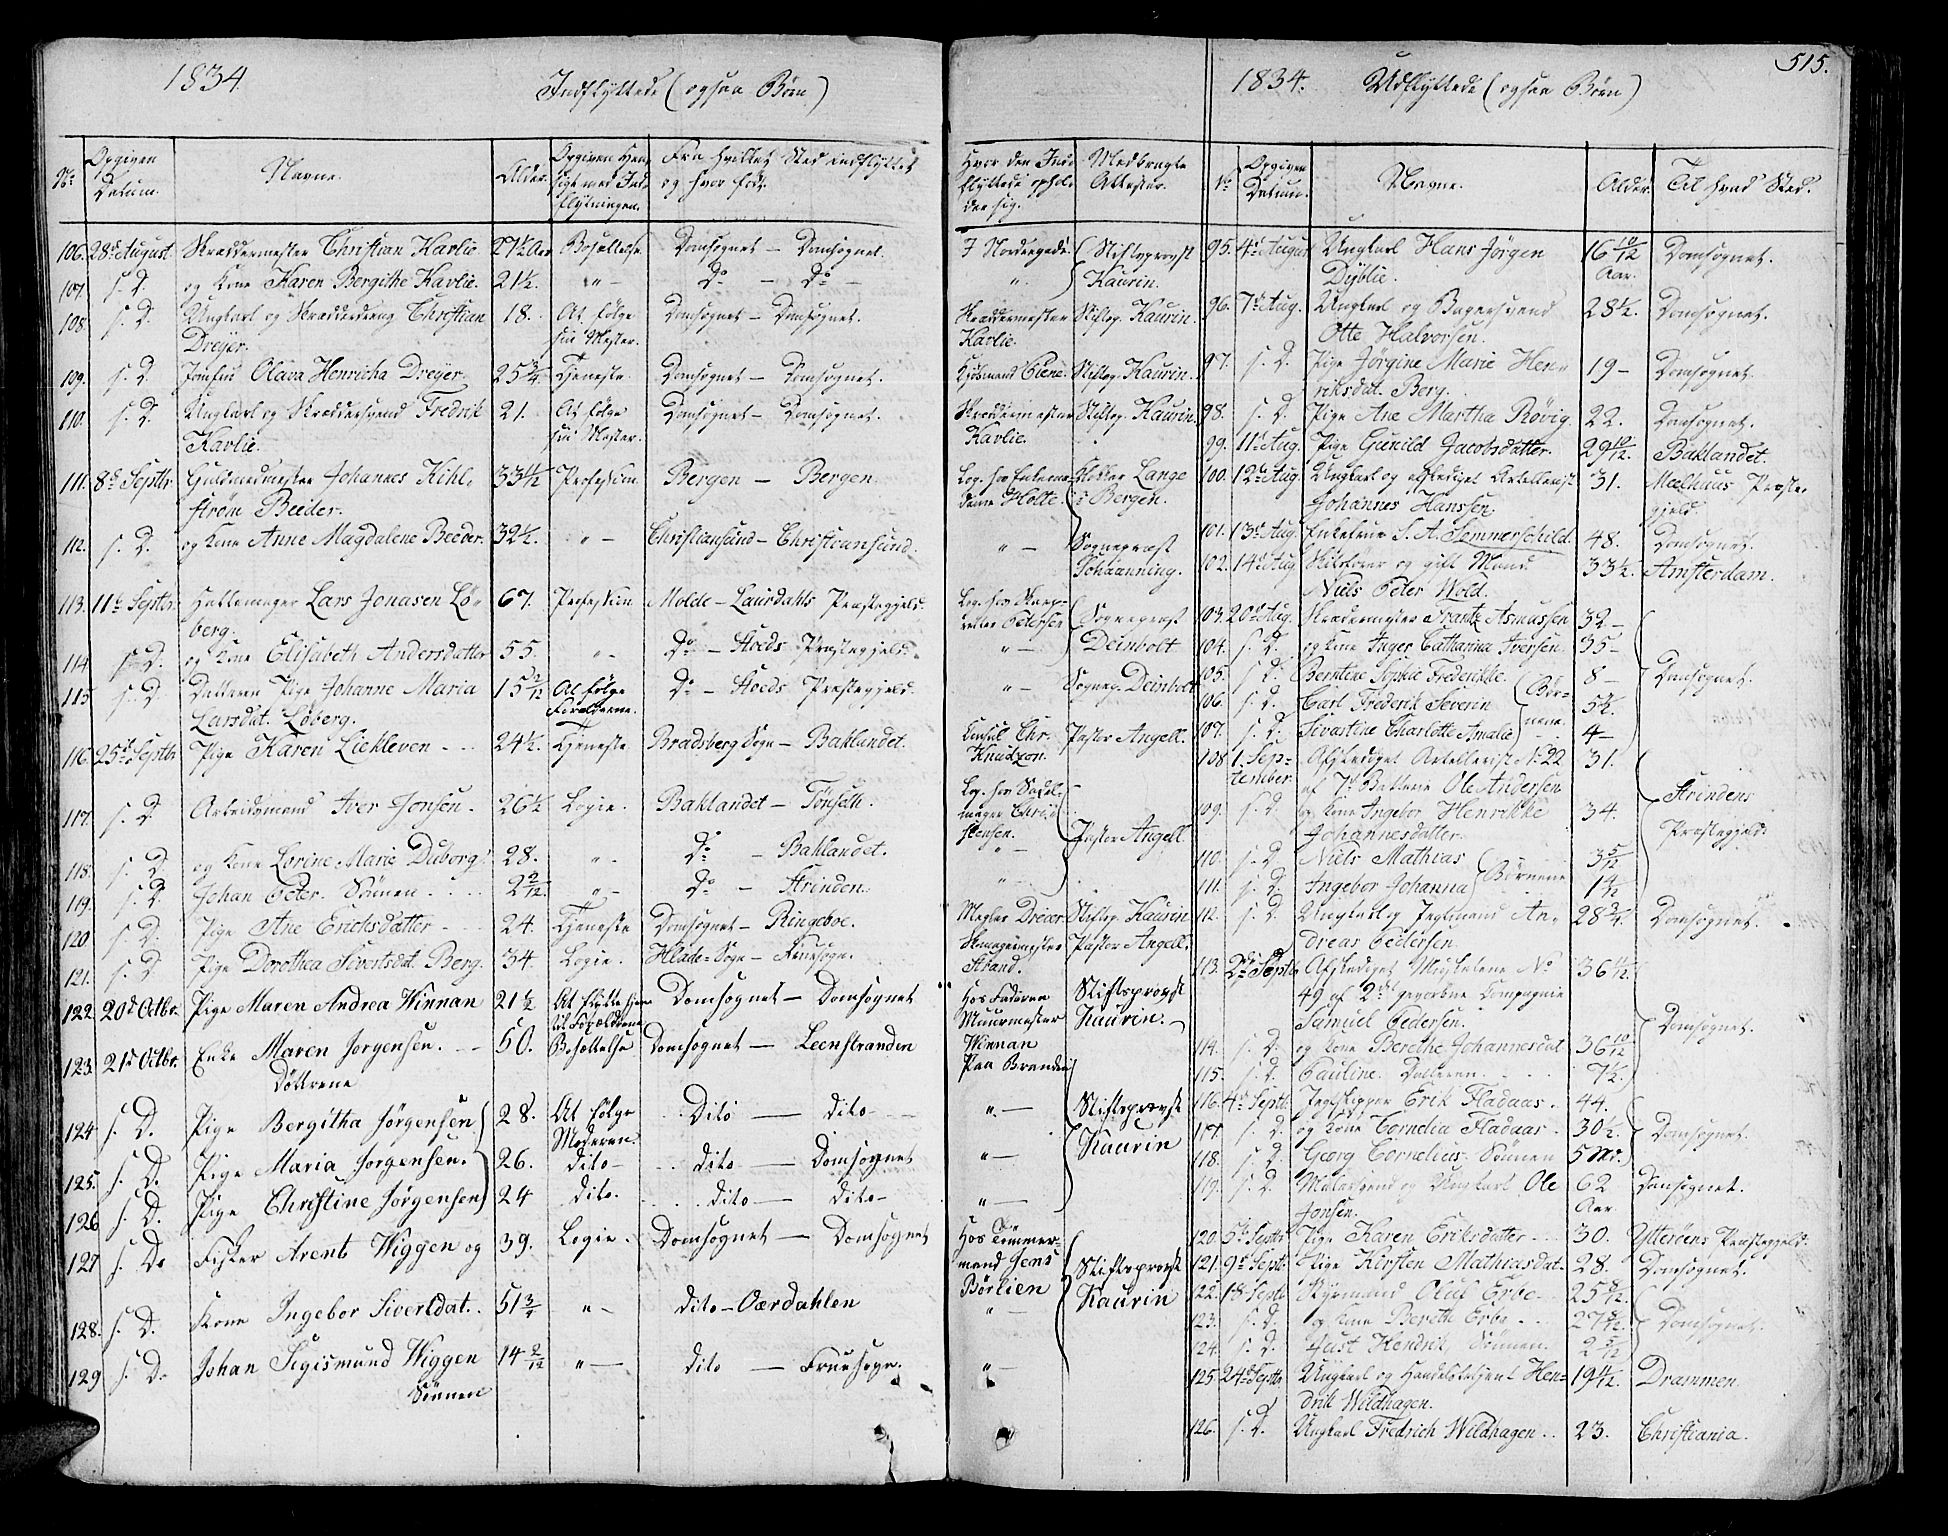 1834. Indflyttede (ogsaa Børn)
No Opgiven Datum. Navne. Alder. Opgiven Hensigt med Indflytningen. Fra hvilket Sted indflyttet og hvor født. Hvor den Indflyttede opholder sig. Medbragte Attester.
106. 28d August. Skræddermester Christian Kavlie. 27½ Aar Bosættelse Domsognet – Domsognet. I Nordregade. Stiftsprovst Kaurin.
107. s. D. og Kone Karen Bergithe Kavlie. 21½. " – Do – Do – " –
108. s. D. Ungkarl og Skrædderdreng Christian Dreyer. 18. At følge sin Mester. Domsognet – Domsognet. Skræddermester Kavlie. Stiftsp. Kaurin.
109. s. D. Jomfru Olava Henricha Dreyer. 25¾ Tjeneste. Domsognet – Domsognet. Kjøbmand Stene. Stiftsp. Kaurin.
110. s. D. Ungkarl og Skræddersvend Fredrik Kavlie. 21. At følge sin Mester. Domsognet – Domsognet. Skræddermester Kavlie. Stiftsp. Kaurin.
111. 8d Septbr. Guldsmedmester Johannes Kihlstrøm Beeder. 33 Profession Bergen – Bergen. Log. hos Holte. Klokker Lange i Bergen.
112. s. D. og Kone Anne Magdalene Beeder. 32½. " – Christiansund – Christiansund. " – Sogneprest
113. 11te Septbr. Hattemager Lars Jonasen Løberg. 67. Profession Molde – Laurdahls Præstegjeld. Log. hos Pedersen Sogneprest Deinbolt
114. s. D. og Kone Elisabeth Andersdatter 55. " – Do – Stoeds Præstegjeld. " –
115. s. D. Datteren Pige Johanne Maria Larsdat. Løberg. 15 2/12 At følge Forældrene. Do – Stoeds Præstegjeld. " – Sognep. Deinbolt
116. 25d Septbr. Pige Karen Liekleven 24½. Tjeneste Bradsberg Sogn – Baklandet. Consul Chr. Knudtzon. Pastor Angell.
117. s. D. Arbeidsmand Iver Jonsen. 26½ Logie. Baklandet – Tønseth. Log. hos Sadelmager Christensen. Pastor Angell
118. s. D. og Kone Lorine Marie Duborg. 28. " – Do – Baklandet. " –
119. s. D. Johan Peter. Sønnen. 2 2/12 " – Do – Strinden. " –
120 s. D. Pige Ane Ericksdatter 24. Tjeneste Domsognet – Ringeboe. Megler Dreier. Stiftsp. Kaurin
121. s. D. Pige Dorothea Sivertsdat. Berg. 34. Logie. Hlade-Sogn – Fruesogn. Skomagermester Strand. Pastor Angell.
122. 20d Octbr. Pige Maren Andrea Winnan 21½ At flytte hjem til Forældrene Domsognet – Domsognet Hos Faderen Muurmester Winnan Stiftsprovst Kaurin.
123. 21d Octbr. Enke Maren Jorgensen. 50. Bosættelse Domsognet – Leenstranden Paa Branden
Døttrene
124 s. D. Pige Bergitha Jørgensen 28. At følge Moderen. Dito – dito – " – Stiftsprovst Kaurin
125. s. D. Pige Maria Jorgensen. 26. dito – dito – Domsognet " –
126 s. D. Pige Christine Jørgensen 24 dito. dito – dito – " –
127 s. D. Fisker Arent Wiggen og 39. Logie. Domsognet – Domsognet Hos Tømmermand Jens Børlien Stiftsprovst Kaurin
128. s. D. Kone Ingebor Sivertdat. 51¾ " – dito – Værdahlen " –
129 s. D. Johan Sigismund Wiggen Sønnen 14 2/12 " – dito – Fruesogn. " –
515.
1834. Udflyttede (ogsaa Børn)
No Opgiven Datum. Navne. Alder. Til hvad Sted.
95. 4d August Ungkarl Hans Jørgen Dyblie. 16 10/12 Aar. Domsognet.
96. 7d Aug. Ungkarl og Bagersvend Otte Halvorsen. 28½. Domsognet.
97. s. D. Pige Jørgine Marie Henriksdat. Berg. 19 – Domsognet.
98. s. D. Pige Ane Martha Røvig 22. Domsognet.
99. 11d Aug. Pige Gunild Jacobsdatter. 29 10/12. Baklandet.
100. 12d Aug. Ungkarl og afskediget Artellerist Johannes Hanssen 31. Melhuus Præstegjeld
101. 13d Aug. Enkefrue S. A. Semmerschild. 48. Domsognet.
102. 14d Aug Skibsfører og gift Mand Niels Peter Wold. 33½. Amsterdam.
103. 20d Aug. Skræddermester Frantz Asmussen 32 –
104. s. D. og Kone Inger Catharina Iversen. 35 –
105. s. D. Berntine Sophie Frederikke. 8 – Domsognet.
106. s. D. Carl Frederik Severin Børnene. 5½.
107. s. D. Sivertine Charlotte Amalie 4 –
108 1. September. Afskediget Artellerist No 22 af 7d Batterie Ole Andersen 31.
109. s. D og Kone Ingebor Henrikke Johannesdatter. 34. Strindens Præstegjeld.
110. s. D. Niels Mathias Børnene 3 5/12
111. s. D. Ingebor Johanna 1
112. s. D. Ungkarl og Jegtmand Andreas Pedersen. 28¾. Domsognet.
113. 2d Septbr Afskediget Musketeer No 49 af 2det gevorbne Compagnie Samuel Pedersen. 36
114. s. D. og Kone Berethe Johannesdat 36 10/12 Domsognet.
115. s. D. Pauline. Datteren. 7½.
116. 4d Septbr. Jegtskipper Erik Fladaas. 44.
117. s. D. og Kone Cornelia Fladaas. 30½. Domsognet.
118. s. D. Georg Cornelius. Sønnen 5 Md.
119. s. D. Malersvend og Ungkarl Ole Jonsen. 62 Aar. Domsognet.
120. 5d Septbr Pige Karen Eriksdatter 30. Ytterøens Præstegjeld.
121. 9d Septb. Pige Kirsten Mathiasdat. 28. Domsognet.
122. 18. Septb Oluf Erbe 25 8/12.
123. s. D. og Kone Berethe Erbe 27 Domsognet.
124. s. D. Just Hendrik, Sønnen. 2 5/12
125 24d Septbr Ungkarl og Handelsbetjent Hendrik Wildhagen. 19 Drammen.
126. s. D. Ungkarl Fredrich Wildhagen. 23. Christiania.